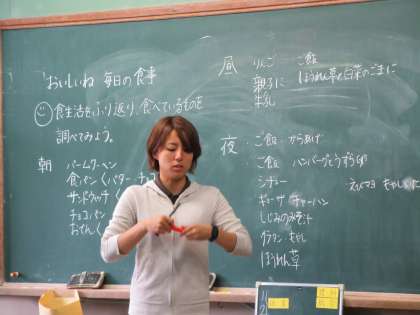 おいしいね 毎日の食事
食生活をふり返り、食べているものを
調べてみよう。
朝
バームクーヘン
食パン(バター・チョコ
サンドウィッチ(
チョコパン
おでん(
昼
りんご ・ ご飯
ほうれん草と白菜のごまに
牛乳
夜
・ご飯 からあげ
・ご飯 ハンバーグとうずら卵
シチュー
エビマヨ
ギョーザ チャーハン
しじみのみそ汁
グラタン
ほうれん草